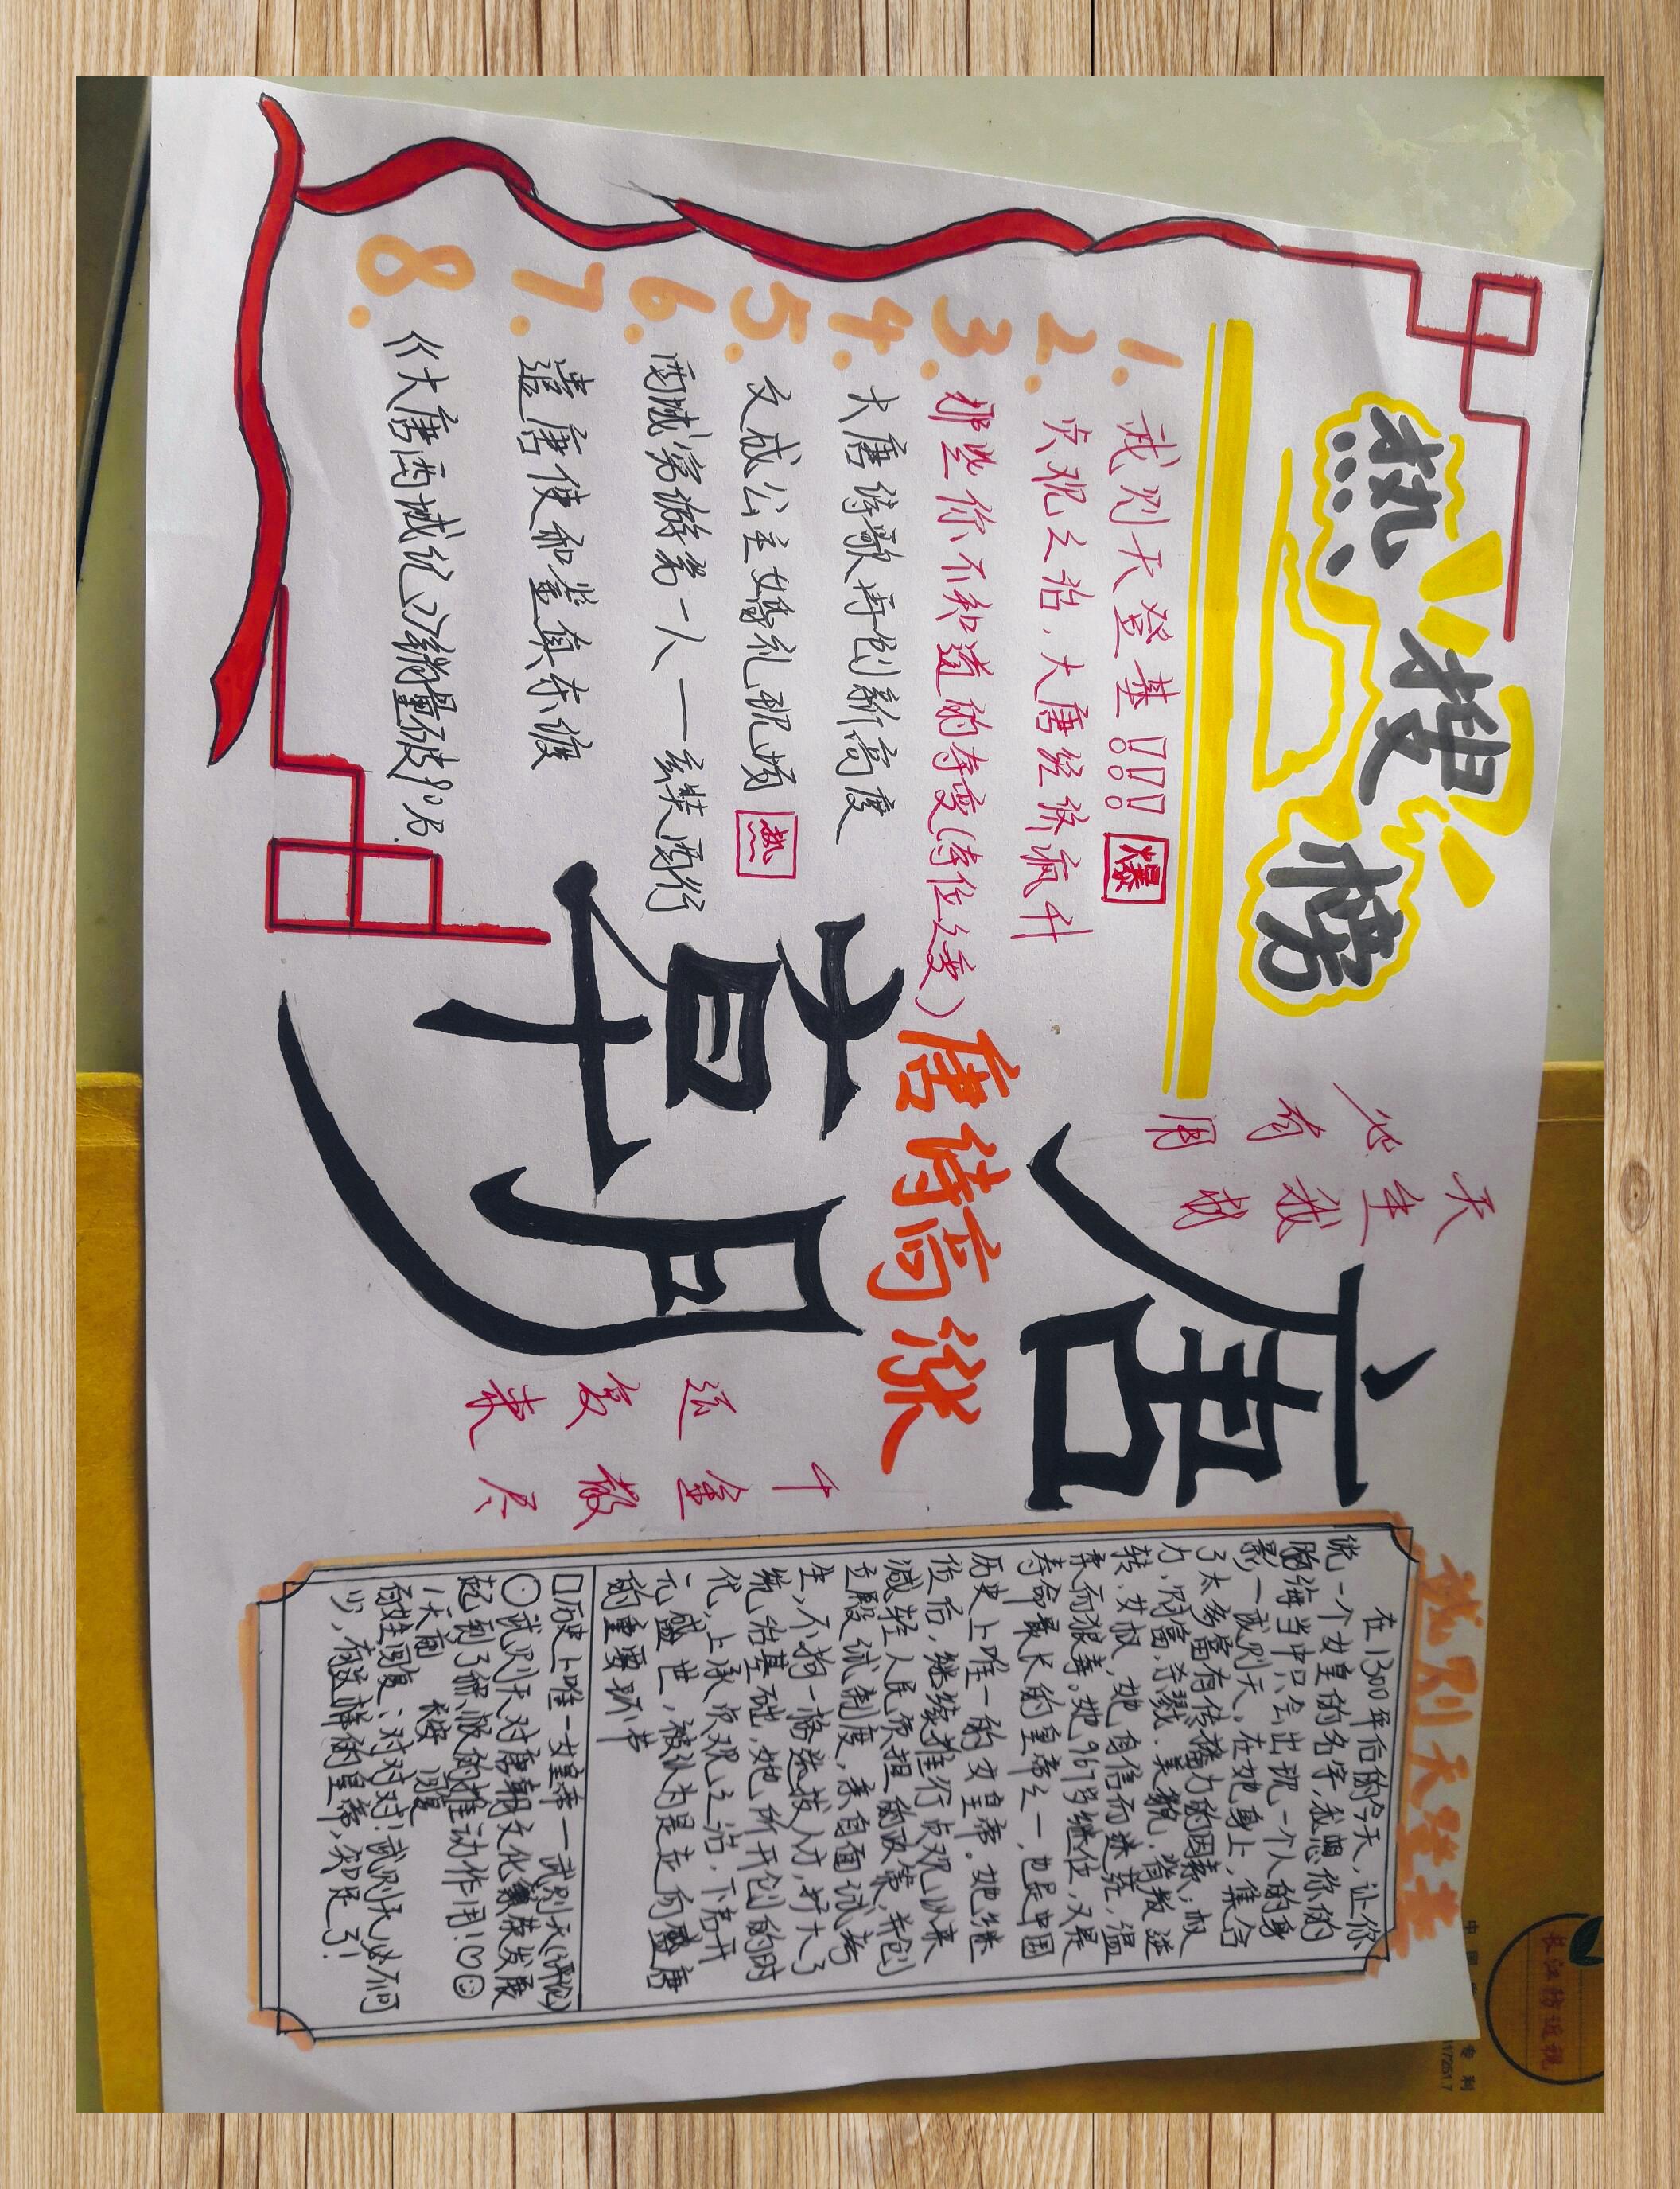 热搜榜
1. 武则天登基!!! 爆
2. 贞观之治,大唐经济疯升
3. 那些你不知道的夺变(夺位之变)
4. 大唐诗歌再创新高度
5. 文成公主婚礼现场 热
6. 西域穷游第一人——玄奘西行
7. 遣唐使和鉴真东渡
8. 《大唐西域纪》销量破8%
唐
朝
唐诗高涨
天生我材
必有用
千金散尽
还复来
武则天登基
在1300年后的今天,让你
说一个女皇的名字,我想你的
脑海当中只会出现一个人的身
影—武则天。在她身上,集合
了太多富有传播力的因素:权
力,财富,杀戮,美貌,背叛逆
转,女权,她自信而迷茫,温
柔而狠毒。她967岁继位,又是
寿命最长的皇帝之一,也是中国
历史上唯一的女皇帝。她继
位后,继续推行贞观以来
减轻人民负担的政策,并创
立殿试制度,亲自面试考
生,不拘一格选拔人才,扩大了
统治基础,她所开创的时
代,上承贞观之治,下启开
元盛世,被认为是走向盛唐
的重要环节
历史上唯一女皇帝—武则天(评论)
武则天对唐朝文化繁荣发展
起到了积极的推动作用!
1天前 回复
回复:对对对!武则天
少,有这样的皇帝,知足了!
长江防近视
中国
专利